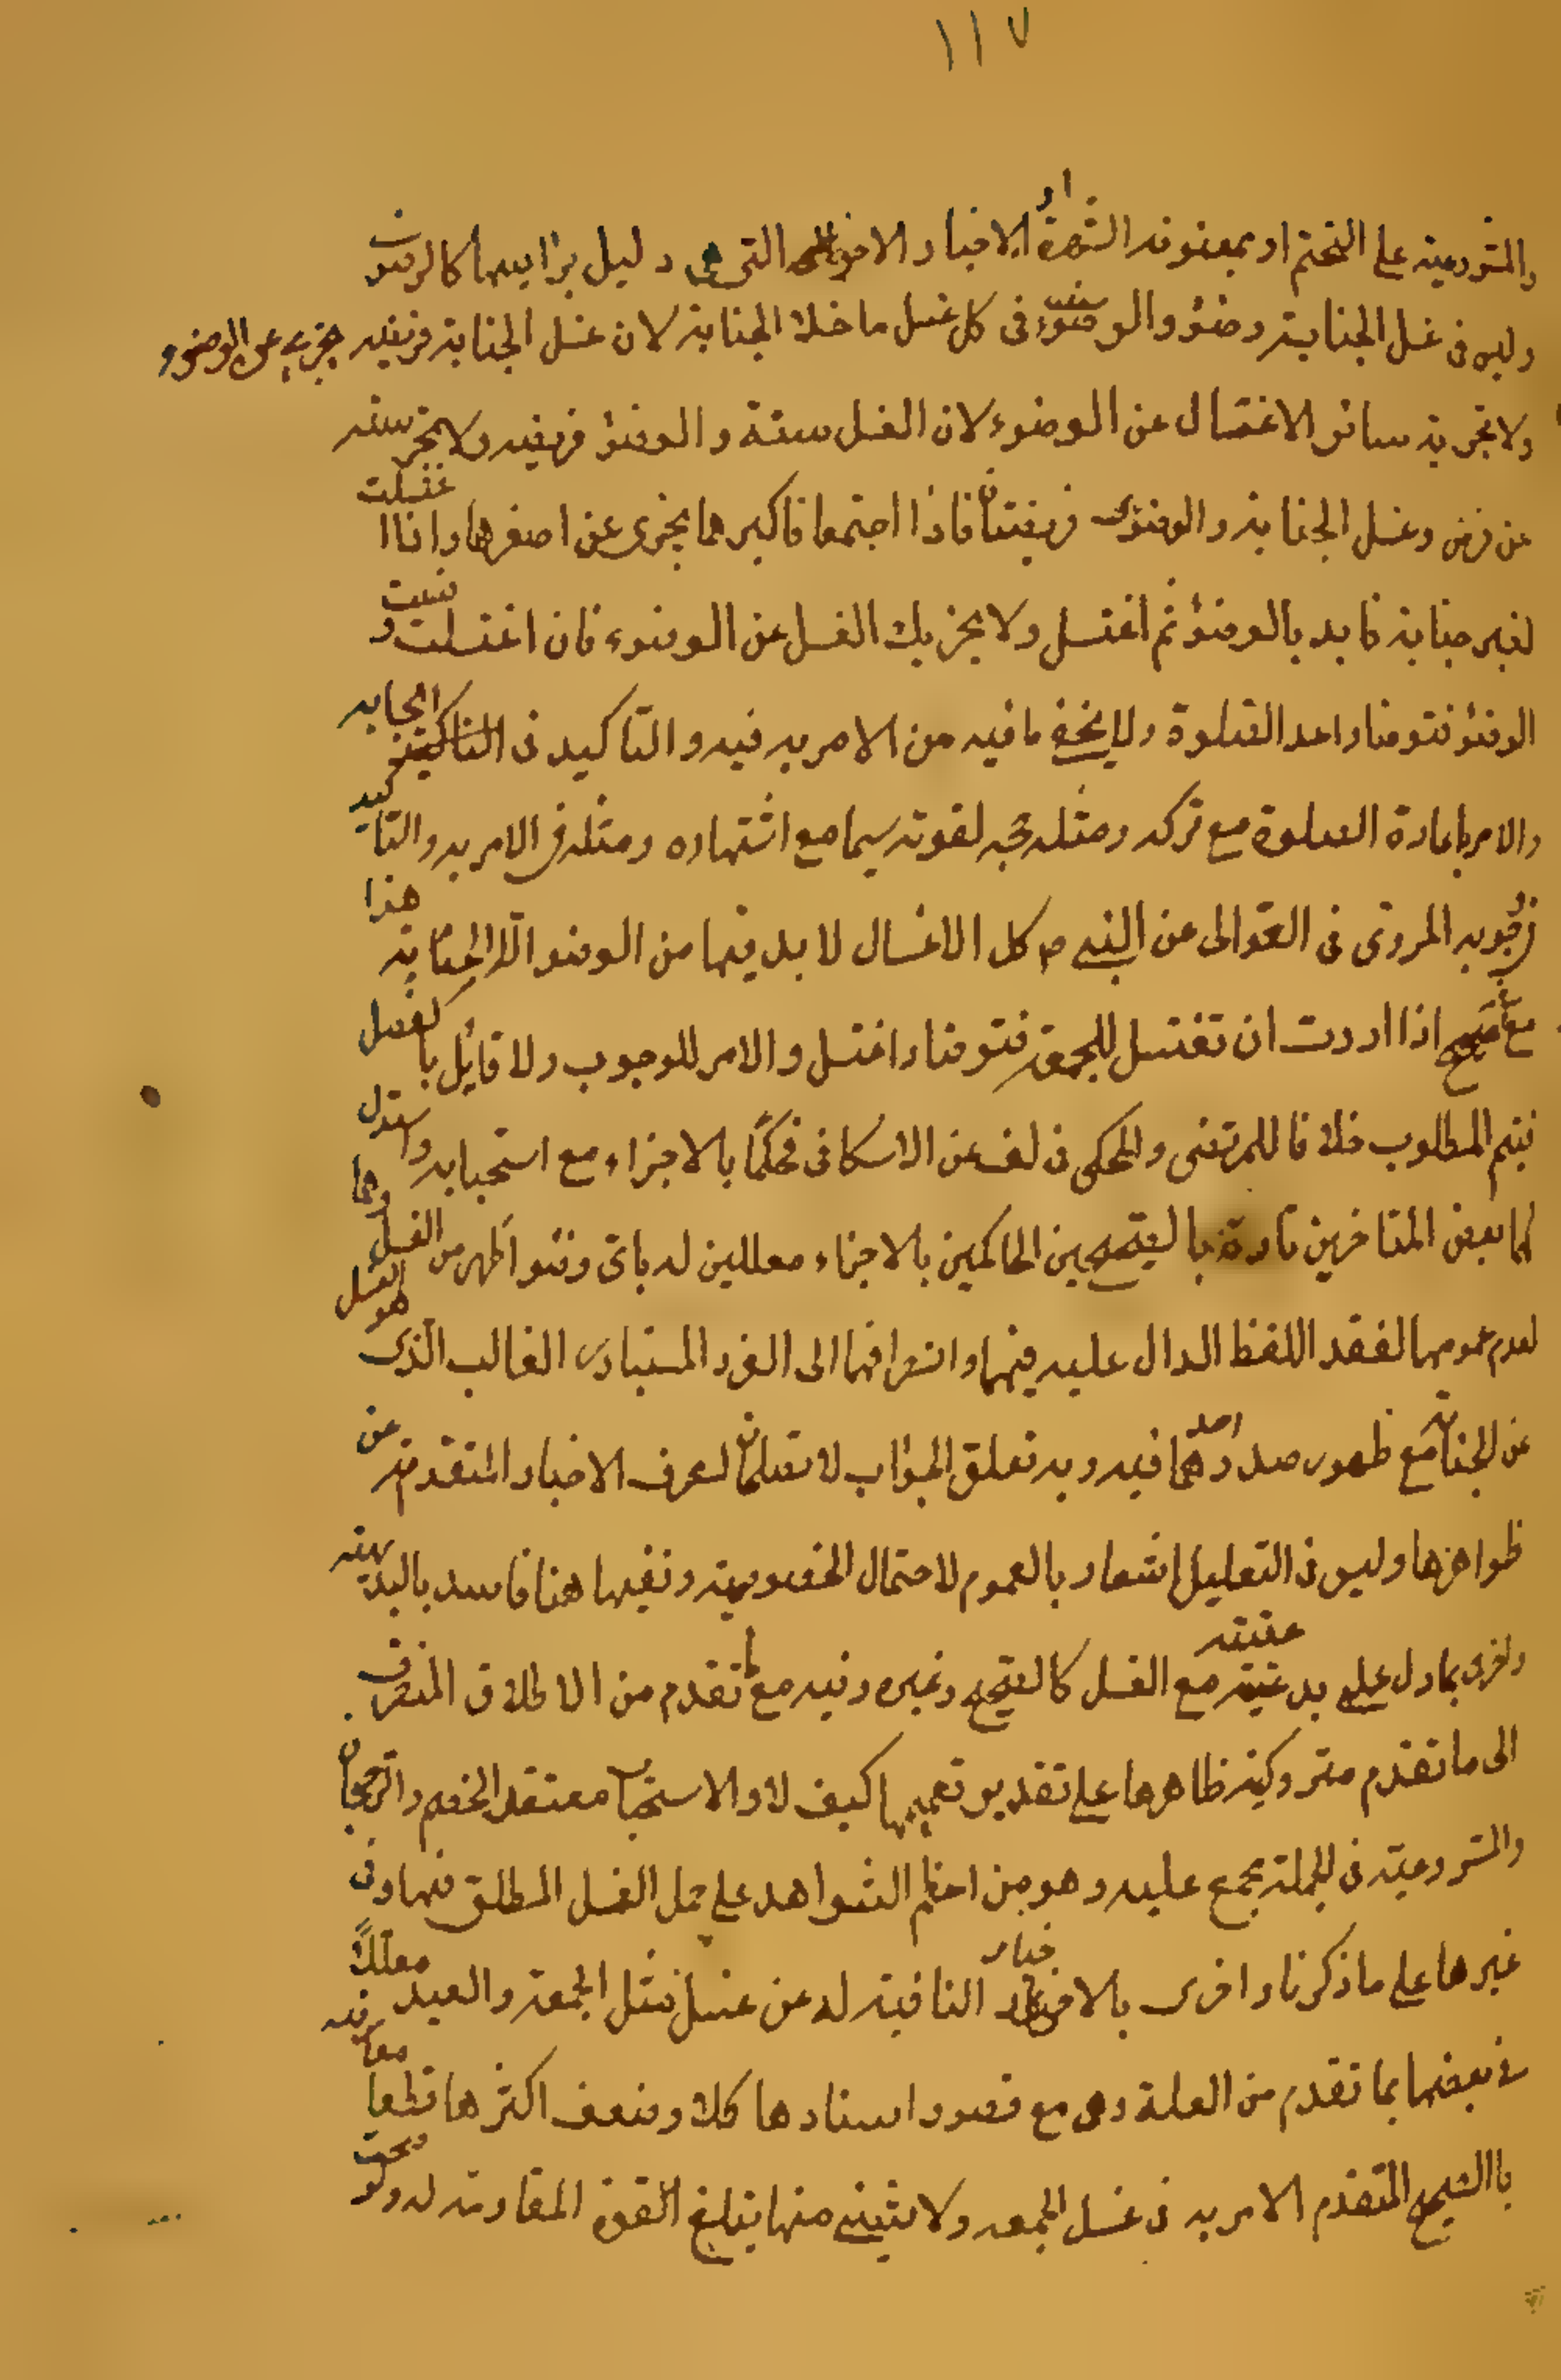 ١١٧
والمشروعية على التحتم او بمعونة الشهرة او الاخبار الاخر التي هي دليل براسها كالرضوي
وليس في غسل الجنابة وضوء والوضوء في كل غسل ما خلا الجنابة لان غسل الجنابة فريضة مجزية عن الوضوء
ولا تجزيه سائر الاغسال عن الوضوء لان الغسل سنة والوضوء فريضة ولا تجزي سنة
عن فرض وغسل الجنابة والوضوء فريضتان فاذا اجتمعا فاكبرهما يجزي عن اصغرهما واذا اغتسلت
لغير جنابة فابدء بالوضوء ثم اغتسل ولا يجزيك الغسل عن الوضوء فان اغتسلت ونسيت
الوضوء فتوضا واعد الصلوة ولا يخفى ما فيه من الامر به فيه والتاكيد في ايجابه
والامر باعادة الصلوة مع تركه ومثله حجة لقوته سيما مع اشتهاره ومثله في الامر به والتاكيد
في وجوبه المروي في العوالي عن النبي ص كل الاغسال لا بد فيها من الوضوء الا الجنابة هذا
مع اذا اردت ان تغتسل للجمعة فتوضا واغتسل والامر للوجوب ولا قائل بالفصل
فيتم المطلوب خلافا للمرتضى والمحكي في لف عن الاسكافي فحكما بالاجزاء مع استحبابه واستدل
لهما بعض المتاخرين تارة بالصحيحين الحاكمين بالاجزاء معللين له باي وضوء اطهر من الغسل وهما
لعدم عمومهما لفقد اللفظ الدال عليه فيهما وانصرافهما الى الفرد المتبادر الغالب الذي هو الغسل
عن الجنابة مع ظهور صدر احدهما فيه وبه تعلق الجواب لا تصلحان لصرف الاخبار المتقدمة عن
ظواهرها وليس في التعليل اشعار بالعموم لاحتمال الخصوصية ونفيها هنا فاسد بالبديهة
واخرى بما دل على بدعيته مع الغسل كالصحيح وغيره وفيه مع ما تقدم من الاطلاق المنصرف
الى ما تقدم متروكية ظاهرها على تقدير تعميمها كيف لا والاستحباب معتقد الخصم والرجحان
والمشروعية في الجملة مجمع عليه وهو من اعظم الشواهد على حمل الغسل المطلق فيها وفي
غيرها على ما ذكرنا واخرى بالاخبار النافية له عن غسل مثل الجمعة والعيد معللا
في بعضها بما تقدم من العلة وهي مع قصور اسنادها كلا وضعف اكثرها قطعا معارضة
بالصحيح المتقدم الامر به في غسل الجمعة ولا شيء منها يبلغ القوة المقاومة له ولو